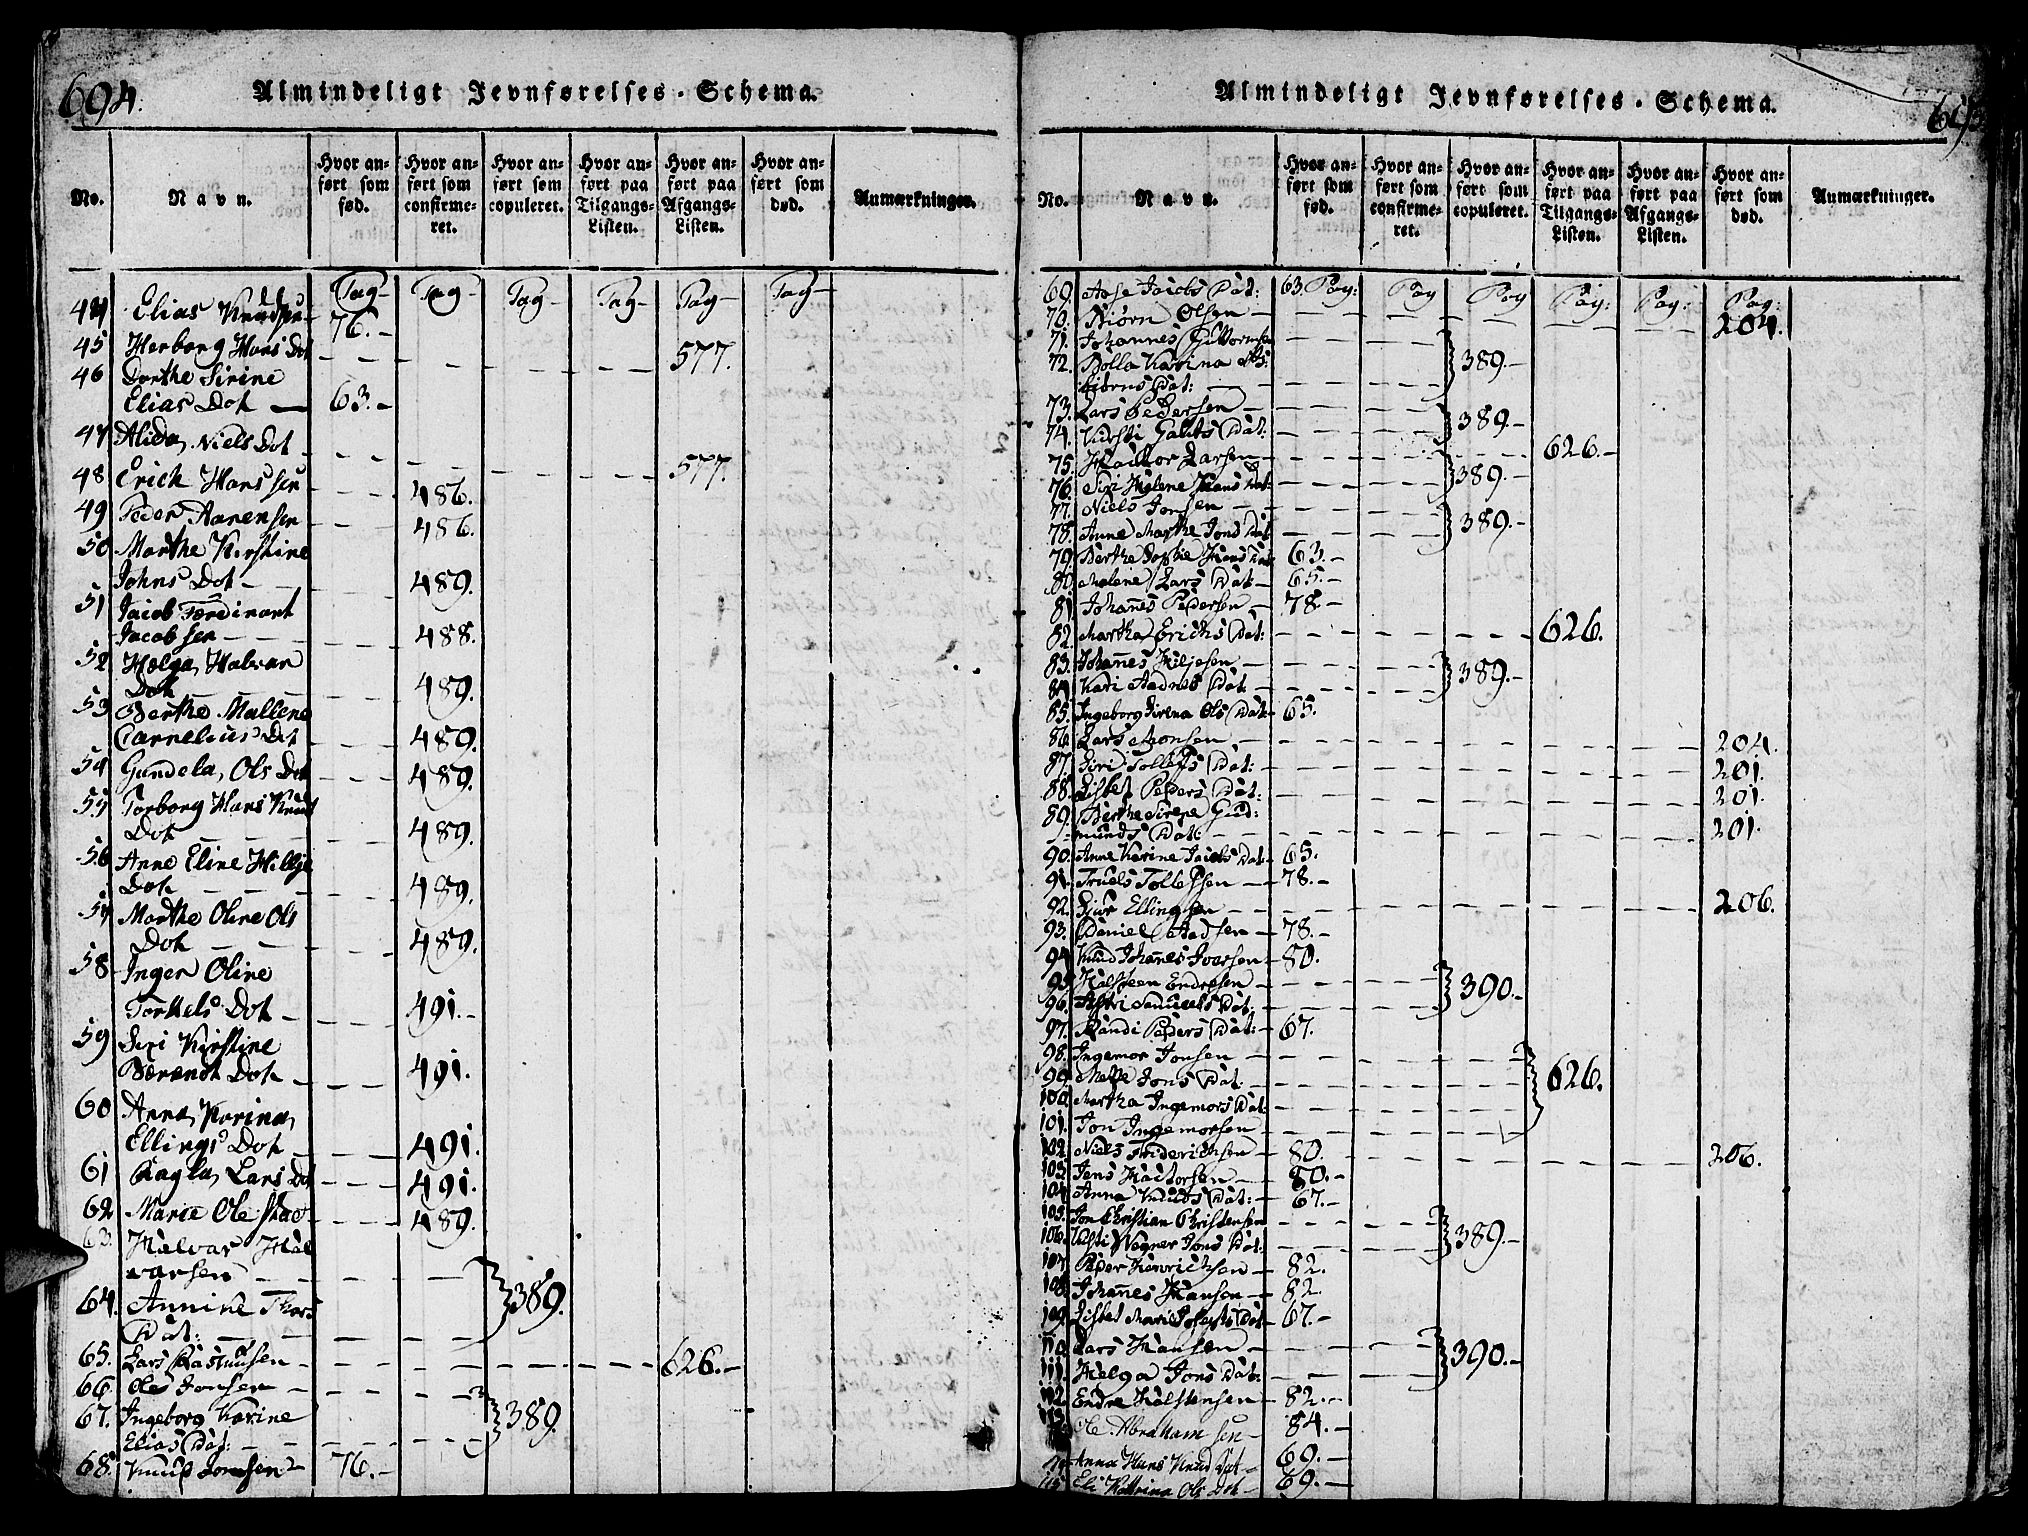 694.
Almindeligt Jevnførelses-Schema.
No.
Navn.
Hvor an-ført som fød.
Hvor an-ført som confirme-ret.
Hvor an-ført som copuleret.
Hvor an-ført paa Tilgangs-Listen.
Hvor an-ført paa Afgangs-Listen.
Hvor an-ført som død.
Anmærkninger.
Pag- Pag- Pag- Pag- Pag- Pag-
44 Elias Knudsen 76.-
45 Herborg Hans Dot 577.
46 Dorthe Sirine
Elias Dot 63.-
47 Alida Niels Dot 577.
48 Erich Hanssen 486.
49 Peder Aarensen 486.
50 Marthe Kirstine
Johns Dot 489.
51 Jacob Ferdinant
Jacobsen 488.
52 Helga Halvar
Dot 489.
53 Berthe Mallene
Cornelius Dot 489.
54 Gundela Ols Dot 489.
55 Torborg Hans Knud
Dot 489.
56 Anne Eline Hillje
Dot 489.
57 Marthe Oline Ols
Dot 489.
58 Inger Oline
Torkels Dot 491.-
59 Siri Kirstine
Berendt Dot 491.
60 Anna Karina
Ellings Dot 491.
61 Ragla Lars Dot 491.
62 Marie Ole 489.
63. Halvar Hal
varsen
64. Annine Thors
Dat: 389.
65. Lars Rasmusen 626.-
66. Ole Jonsen
67. Ingeborg Karine 389.
Elias Dat:
68. Knud Jonsen 76.-
Almindeligt Jevnførelses-Schema.
695
No.
Navn.
Hvor an-ført som fød.
Hvor an-ført som confirme-ret.
Hvor an-ført som copuleret.
Hvor an-ført paa Tilgangs-Listen.
Hvor an-ført paa Afgangs-Listen.
Hvor an-ført som død.
Anmærkninger.
69. Aase Jacobs Dat: 63. Pag: Pag Pag Pag: Pag: Pag:
70. Biørn Olsen 204.
71. Johannes Guttormsen
72. Bolla Karina Als: 389.-
biørns Dat:
73. Lars Pedersen
74. Kirsti Gabels Dat: 389.-
75. Hadlor Larsen 626.-
76. Siri Helene Hans Dat: 389.-
77. Niels Jonsen
78. Anne Marthe Jons Dat 389.-
79. Berthe Sophie Hans Dat 63.-
80. Malene Lars Dat 65.-
81. Johannes Pedersen 78.-
82. Martha Erichs Dat: 626.
83. Johannes Hiljesen
84. Kari Aadnes Dat 389.-
85. Ingeborg Sirena Ols Dat 65.
86. Lars Monsen 204.
87. Siri Tollefs Dat: 201.
88. Lisbet Peders Dat: 201.
89. Berthe Sirene Gud:
munds Dat: 201.
90. Anne Karine Jacobs Dat 65.
91. Truels Tollefsen 78.-
92. Siur Ellingsen 206.
93. Daniel Aadsen 78.-
94. Knud Johannes Iversen 80.
95. Halsteen Endresen
96. Astri Samuels Dat: 390.-
97. Randi Peders Dat: 67.
98. Ingemor Jonsen
99. Mette Jons Dat: 626.
100. Martha Ingemors Dat:
101. Jon Ingemorsen
102. Niels Friderichsen 80. 206.
103. Jens Hadtorsen 80.-
104. Anna Knuts Dat: 67.-
105. Jon Christian Christensen
106. Kisti Wegner Jons Dat: 389.-
107. Peder Henrichsen 82.
108. Johannes Hansen 82.
109. Lisbet Marie Josephs Dat: 67.-
110. Lars Hansen
111. Helga Jons Dat: 390.-
112. Endre Halstensen 82.-
113. Ole Abrahamsen 84.-
114 Anna Hans Knud Dat 69.-
115 Eli Katrina Ols Dot 69.-